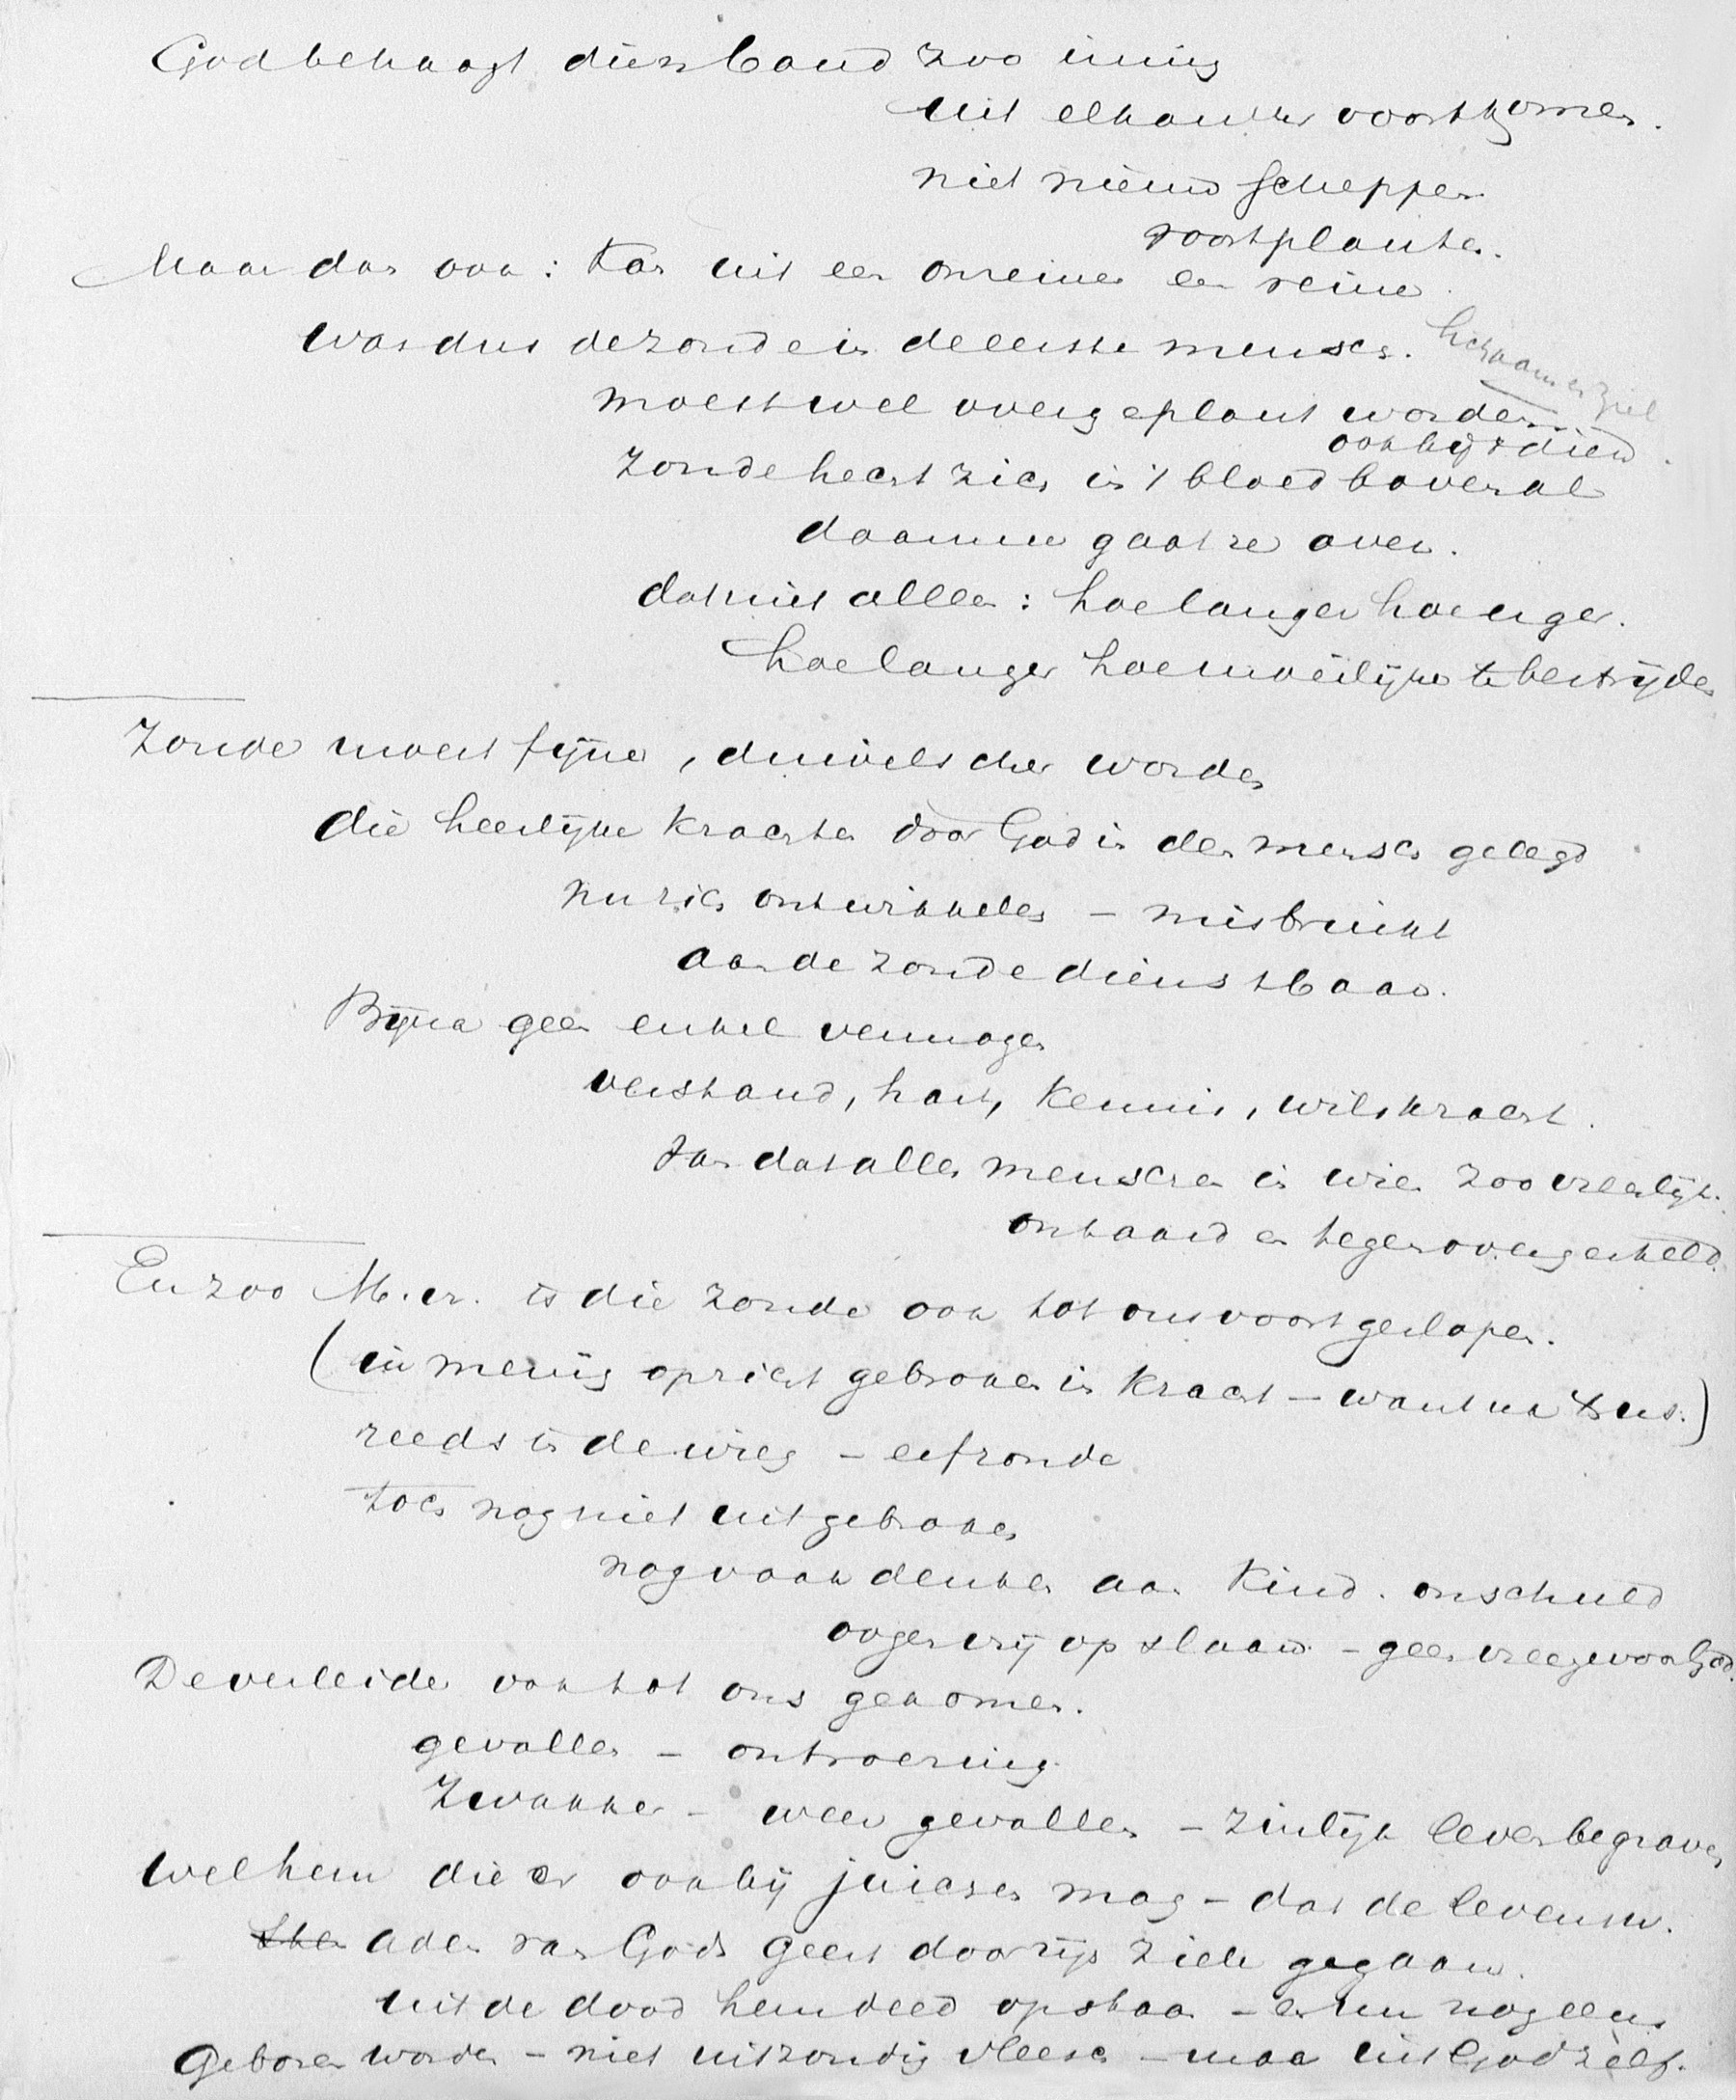 God behaagt dien band zoo innig
uit elkander voortkomen.
niet nieuw scheppen
voortplanten.
Maar dan ook: kan uit een onreinen een reine.
Was dus de zonde in de eerste mensch. Lichaam en Ziel
moest wel overgeplant worden.
ook bij dien
Zonde hecht zich in 't bloed bovenal
daarmee gaat ze over.
dat niet alleen: hoe langer hoe enger.
hoe langer hoe moeilijker te bestrijden
Zonde moest fijner, duivelscher worden
die heerlijke krachten door God in den mensch gelegd
nu zich ontwikkelen - misbruikt
aan de zonde dienstbaar.
Bijna geen enkel vermogen
verstand, hart, kennis, wilskracht.
van dat alles menschen in wien zoo vreeselijk.
ontaard en tegenovergesteld.
En zoo M. er. is die zonde ook tot ons voortgeslopen.
(in menig opzicht gebroken in kracht - want na
reeds in de wieg - erfzonde
toch nog niet uitgebroken
nog vaak denken aan kind. onschuld
oogen vrij opslaan - geen vrees voor God.
De verleider ook tot ons gekomen.
gevallen - ontroering.
Zwakker - weer gevallen - zinlijk leven begraven
Wel hem die er ook bij juichen mag - dat de levenw.
adem van Gods geest door zijn ziele gegaan.
uit de dood hem deed opstaan - en nu nog eens
Geboren worden - niet uit zondig vleesch - maar uit God zelf.